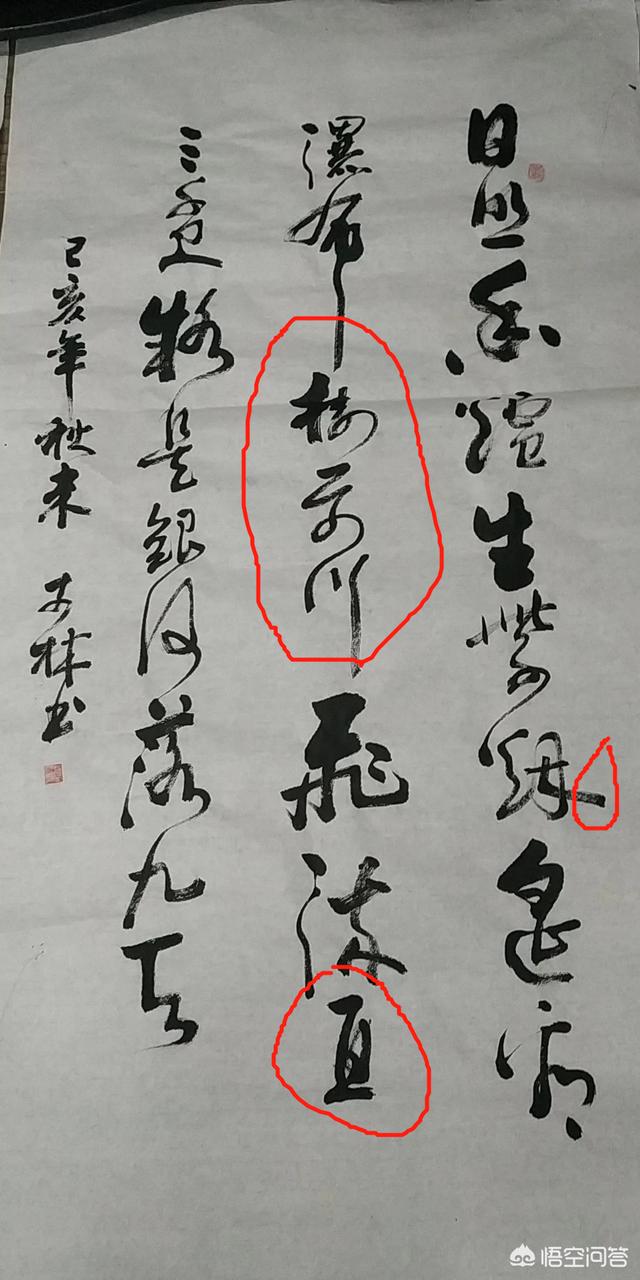 日照香爐生紫烟遙看
瀑布掛前川飛流直
三千尺疑是銀河落九天
己亥年秋末 林书
悟空问答